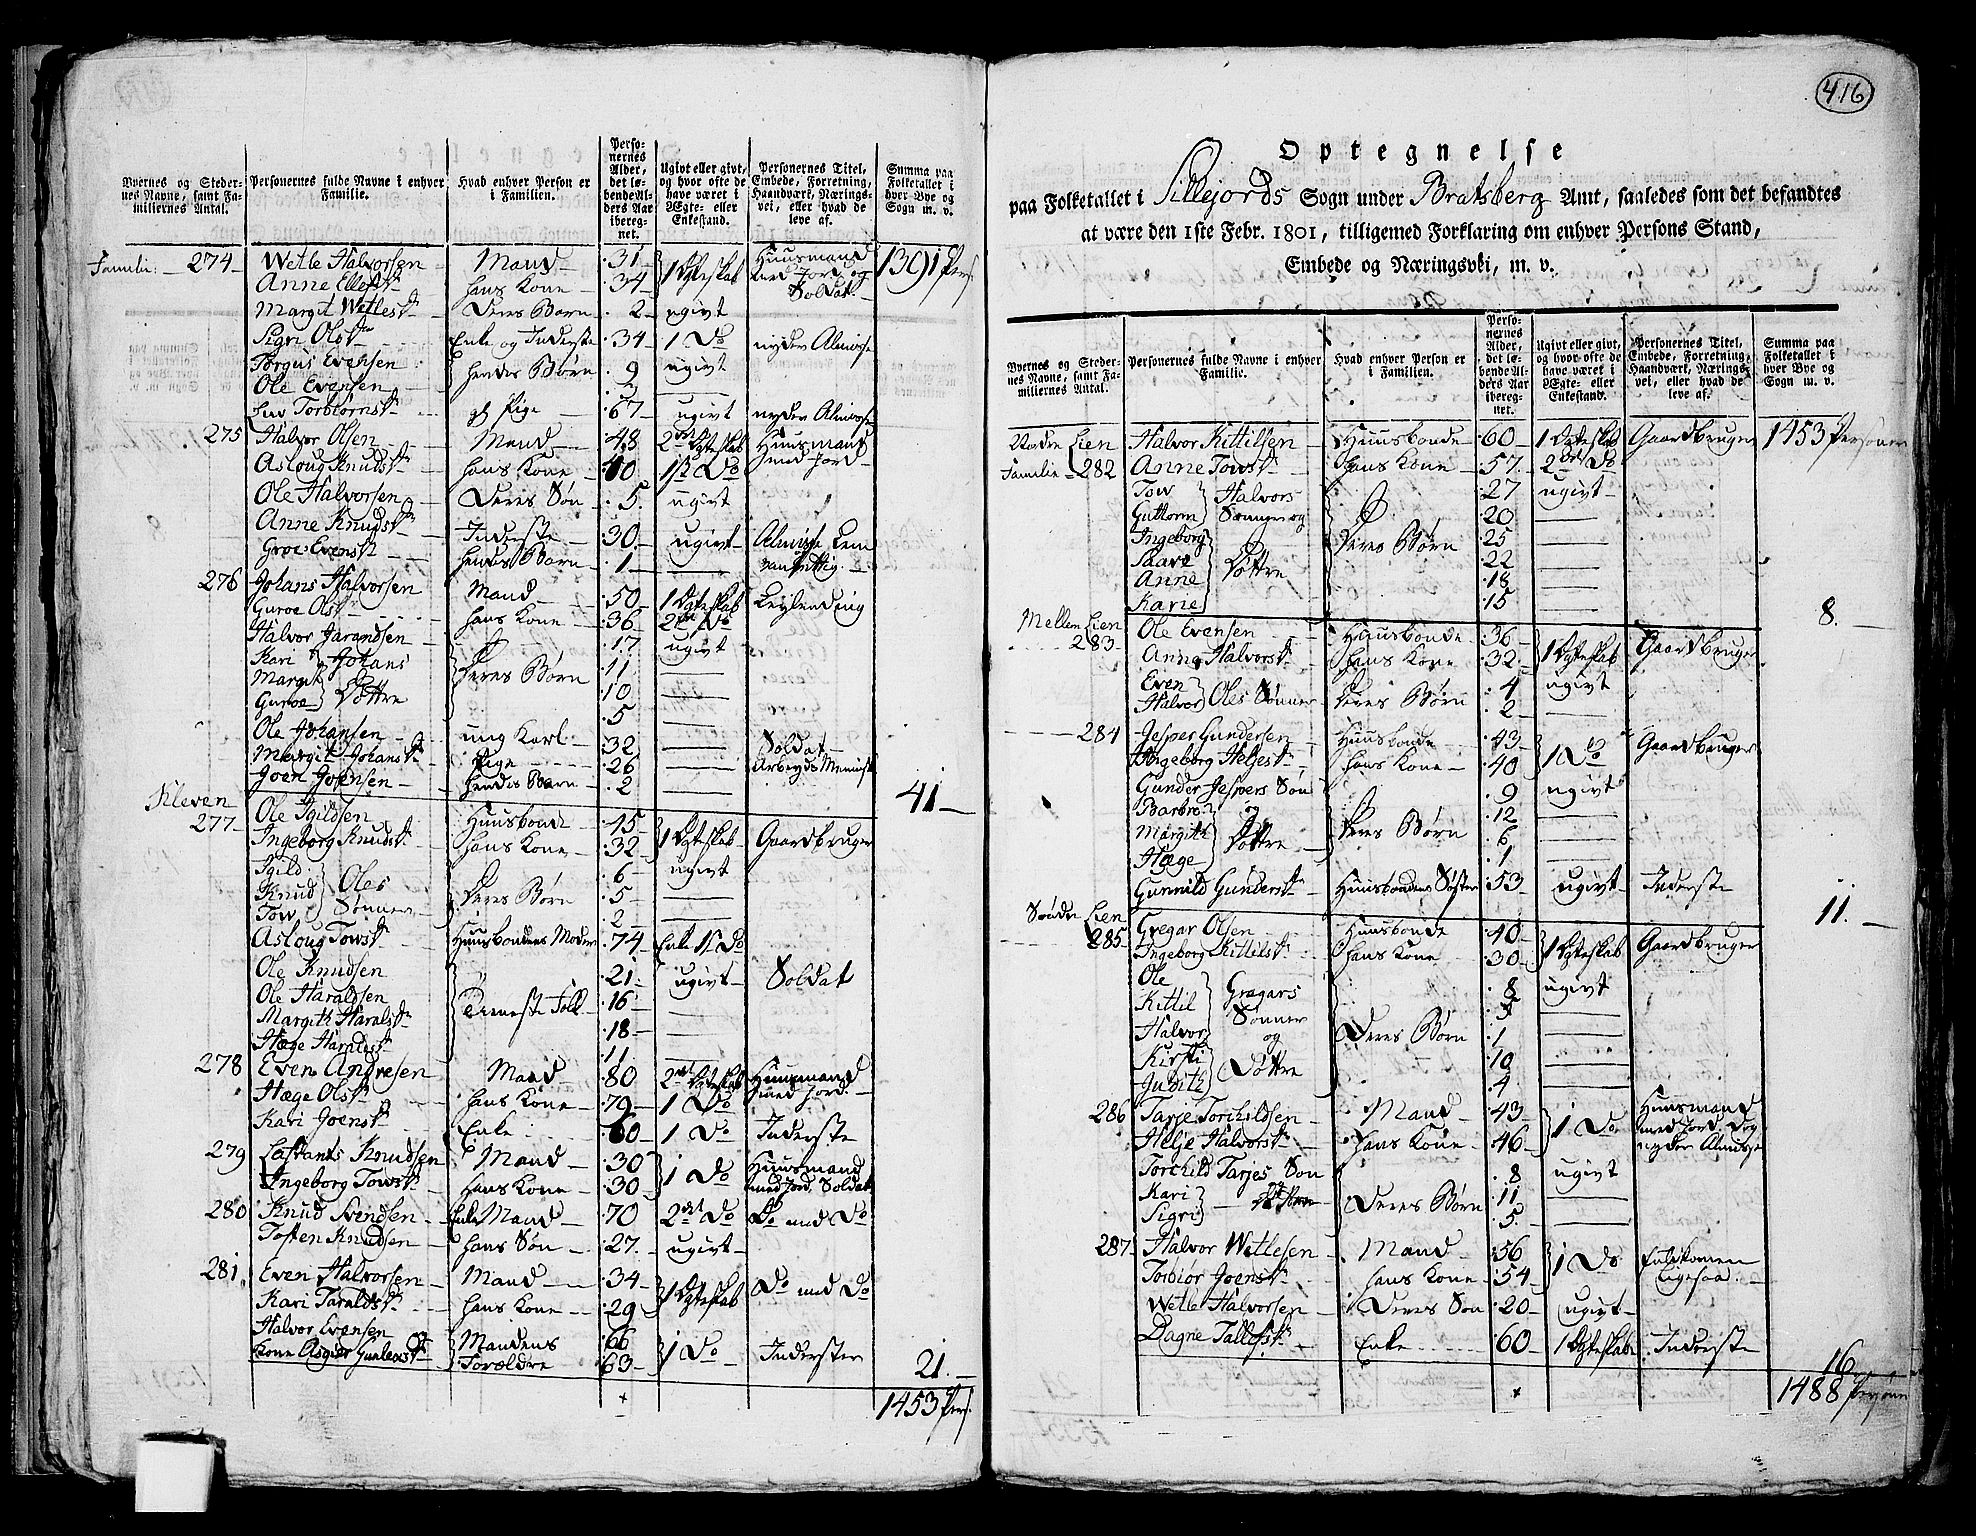 416
Byernes og Steder-
nes Navne, samt Fa-
miliernes Antal.
Personernes fulde Navne i enhver
Familie.
Hvad enhver Person er
i Familien.
Perso-
nernes
Alder,
det lø-
bende Al-
ders Aar
ibereg-
net.
Ugivt eller givt,
og hvor ofte de
have været i
Ægte- eller
Enkestand.
Personernes Titel,
Embede, Forretning,
Haandværk, Nærings-
vei, eller hvad de
leve af.
Summa paa
Folketallet i
hver Bye og
Sogn m. v.
Familie 274 Wetle Halvorsen Mand 31 1 Ægteskab Huusmand med Jord og Soldat 1391 Pers.
Anne Ellefsdr hans Kone 34
Margit Wetlesdr Deres Barn 2 ugivt
Sigri Olsdr Enke og Inderste 34 1 Do nyder Almisse
Torgus Evensen hendes Børn 9 ugivt
Ole Evensen
Liv Torbiørnsdr gl Pige 67 ugivt nyder Almisse
275 Halvor Olsen Mand 48 2det Ægteskab Huusmand med Jord
Asloug Knudsdr hans Kone 40 1st Do
Ole Halvorsen Deres Søn 5 ugivt
Anne Knudsdr Inderste 30 ugivt Almisse Lem
Groe Evensdr hendes Barn 1 — vanvittig
276 Johans Halvorsen Mand 50 1 Ægteskab Leylending
Guroe Olsdr hans Kone 36 2det Do
Halvor Jarandsen 17 ugivt
Kari Johans 11 —
Margit Døttre Deres Børn 10 —
Guroe 5 —
Ole Johansen ung Karl 32 — Soldat
Margit Johansdr Pige 26 — Arbeyds Menniske
Joen Joensen hendes Barn 2 — 41
Kleven
277 Ole Igildsen Huusbonde 45 1 Ægteskab Gaardbruger
Ingeborg Knudsdr hans Kone 32
Igild Oles 6 ugivt
Knud Sønner Deres Børn 5 —
Tow 2 —
Asloug Towsdr Huusbondens Moder 74 Enke 1st Do
Ole Knudsen 21 ugivt Soldat
Ole Haraldsen Tieneste Folk 16 —
Margith Haralsdr 18 —
Hæge Haraldsdr 11 —
278 Even Andresen Mand 80 2det Ægteskab Huusmand med Jord
Hæge Olsdr hans Kone 79 1 Do
Kari Joensdr Enke 60 1 Do Inderste
279 Lafrants Knudsen Mand 30 1 Do Huusmand med Jord Soldat
Ingeborg Towsdr hans Kone 30
280 Knud Svendsen Enke Mand 70 2det Do Do med Do
Tosten Knudsen hans Søn 27 ugivt
281 Even Halvorsen Mand 34 1 Ægteskab Do med Do
Kari Taraldsdr hans Kone 29
Halvor Evensen Mandens 66 1 Do Inderster
Kone Asgier Gunlexsdr Forældre 63 21
1453 Pers.
Optegnelse
paa Folketallet i Sillejords Sogn under Bratsberg Amt, saaledes som det befandtes
at være den 1ste Febr. 1801, tilligemed Forklaring om enhver Persons Stand,
Embede og Næringsvei, m. v.
Byernes og Steder-
nes Navne, samt Fa-
miliernes Antal.
Personernes fulde Navne i enhver
Familie.
Hvad enhver Person er
i Familien.
Perso-
nernes
Alder,
det lø-
bende Al-
ders Aar
ibereg-
net.
Ugivt eller givt,
og hvor ofte de
have været i
Ægte- eller
Enkestand.
Personernes Titel,
Embede, Forretning,
Haandværk, Nærings-
vei, eller hvad de
leve af.
Summa paa
Folketallet i
hver Bye og
Sogn m. v.
Lien Halvor Kittilsen Huusbonde 60 1 Ægteskab Gaardbruger 1453 Personer
Familie 282 Anne Towsdr hans Kone 57 2det Do
Tow Halvors 27 ugivt
Guttorm Sønner og 20 —
Ingeborg Deres Børn 25 —
Saave Døttre 22 —
Anne 18 —
Karie 15 — 8
Mellem Lien Ole Evensen Huusbonde 36 1 Ægteskab Gaardbruger
283 Anne Halvorsdr hans Kone 32
Even Oles Sønner Deres Børn 4 ugivt
Halvor 2 —
284 Jesper Gundersen Huusbonde 43 1 Do Gaardbruger
Ingeborg Heljesdr hans Kone 40
Gunder Jespers Søn 9 ugivt
Barbro og 12 —
Margith Døttre Deres Børn 6 —
Hæge 1 —
Gunnild Gundersdr Huusbondens Søster 53 ugivt Inderste 11
Søndre Lien Gregar Olsen Huusbonde 40 1 Ægteskab Gaardbruger
285 Ingeborg Kittilsdr hans Kone 30
Ole Gregars 8 ugivt
Kittil Sønner —
Halvor og Deres Børn 1 —
Kirsti Døttre 10 —
Judith 4 —
286 Tarje Torchildsen Mand 43 1 Do Huusmand med Jord og nyder Almisse
Helje Halvorsdr hans Kone 46
Torchild Tarjes Søn 8 ugivt
Kari Deres Børn 11 —
Sigri 5 —
287 Halvor Wetlesen Mand 56 1 Do
Torbiør Joensdr hans Kone 54
Wetle Halvorsen Deres Søn 20 ugivt
Dagne Tallefsdr Enke 60 1 Ægteskab Inderste 16
1488 Personer